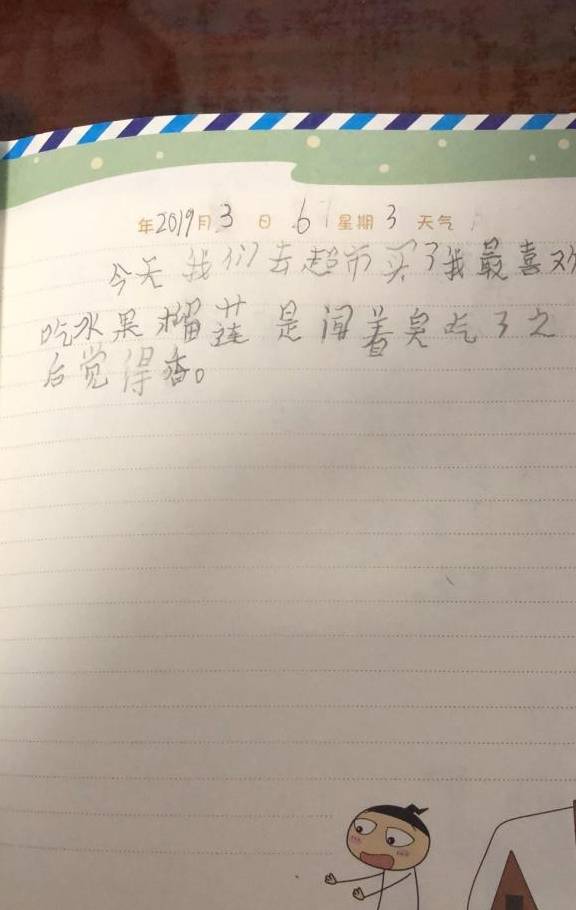 年2019月3日6星期3天气
今天我们去超市买了我最喜欢
吃水果榴莲是闻着臭吃了之
后觉得香。